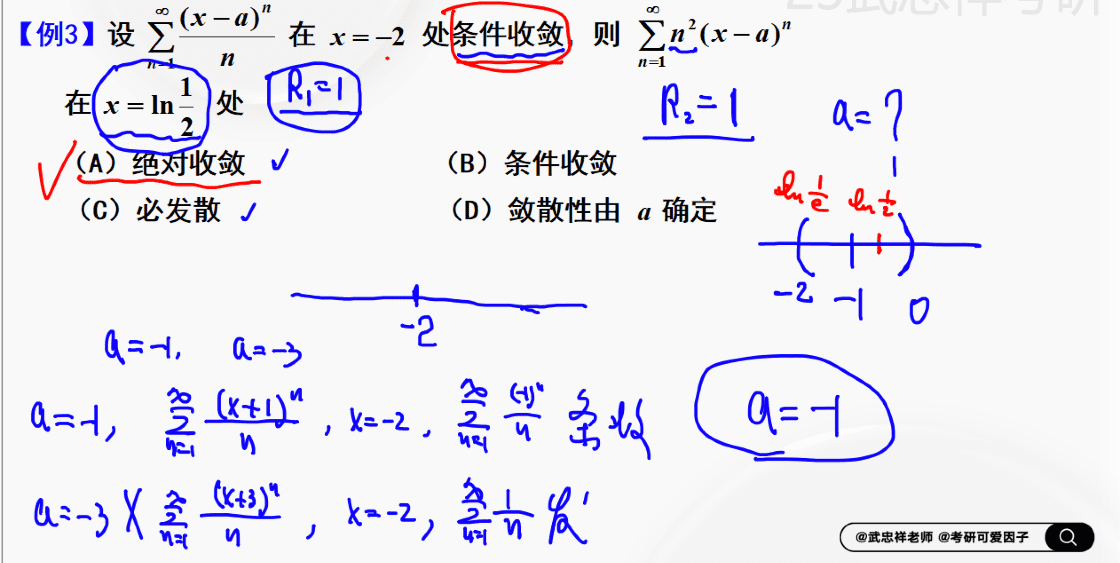 【例3】设 $\sum_{n=1}^{\infty}\frac{(x-a)^n}{n}$ 在 x=-2 处条件收敛，则 $\sum_{n=1}^{\infty}n^2(x-a)^n$
在 $x=\ln\frac{1}{2}$ 处 R₁=1 R₂=1 a=?
（A）绝对收敛 ✓ （B）条件收敛
（C）必发散 ✓ （D）敛散性由 a 确定
$\ln\frac{1}{e}$ $\ln\frac{1}{2}$
-2 -1 0
-2
a=-1, a=-3
a=-1, $\sum_{n=1}^{\infty}\frac{(x+1)^n}{n}$, x=-2, $\sum_{n=1}^{\infty}\frac{(-1)^n}{n}$ a=-1
a=-3 × $\sum_{n=1}^{\infty}\frac{(x+3)^n}{n}$, x=-2, $\sum_{n=1}^{\infty}\frac{1}{n}$
@武忠祥老师 @考研可爱因子